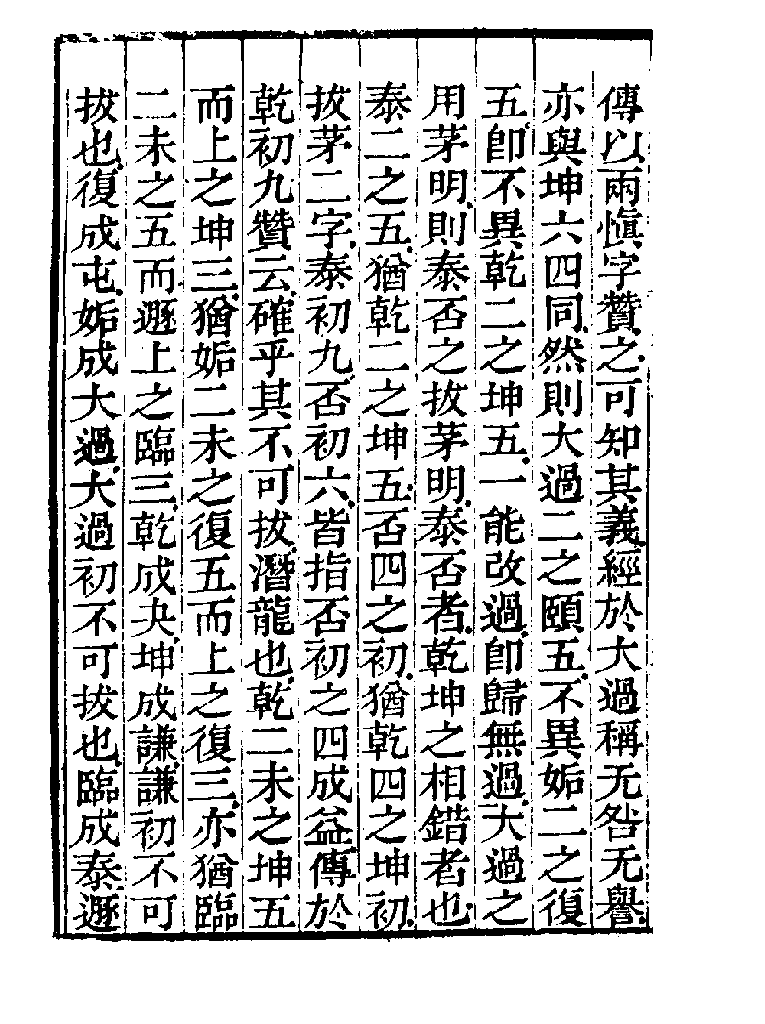 傳以兩慎字贊之可知其義經於大過稱无咎无譽
亦與坤六四同然則大過二之頤五不異姤二之復
五卽不異乾二之坤五一能改過卽歸無過大過之
用茅明則泰否之拔茅明泰否者乾坤之相錯者也
泰二之五猶乾二之坤五否四之初猶乾四之坤初
拔茅二字泰初九否初六皆指否初之四成益傳於
乾初九贊云確乎其不可拔潛龍也乾二未之坤五
而上之坤三猶姤二未之復五而上之復三亦猶臨
二未之五而遯上之臨三乾成夬坤成謙謙初不可
拔也復成屯姤成大過大過初不可拔也臨成泰遯